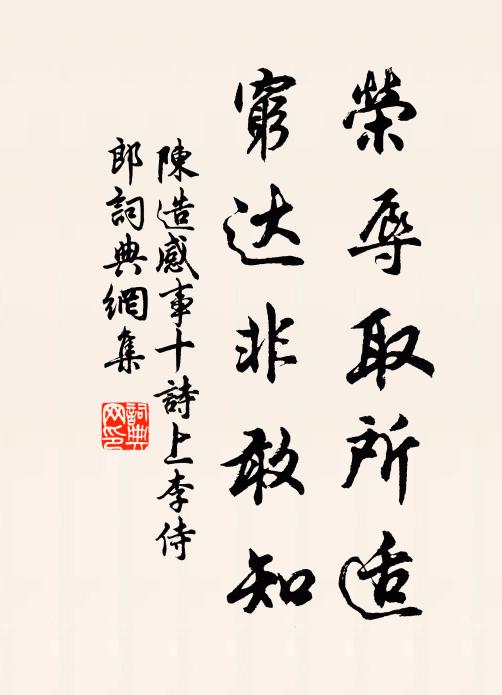 榮辱取所适
窮达非敢知
陳造感事十詩上李侍
郎詞典網集
詞典
网印